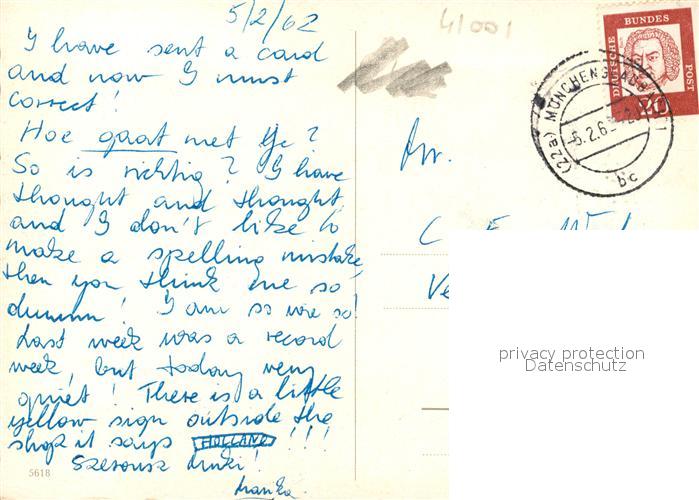 5/2/62
I have sent a card
and now I must
correct!
Hoe gaat met Ye?
So is richtig? I have
thought and thought
and I don't like to
make a spelling mistake,
then you think me so
dumm! I am so
Last week was a record
week, but today very
quiet! There is a little
yellow sign outside the
shop it says HOLLAND !!!
5618
41001
DEUTSCHE BUNDESPOST
20
(22a) MÖNCHENGLADBACH 1
bc
privacy protection
Datenschutz